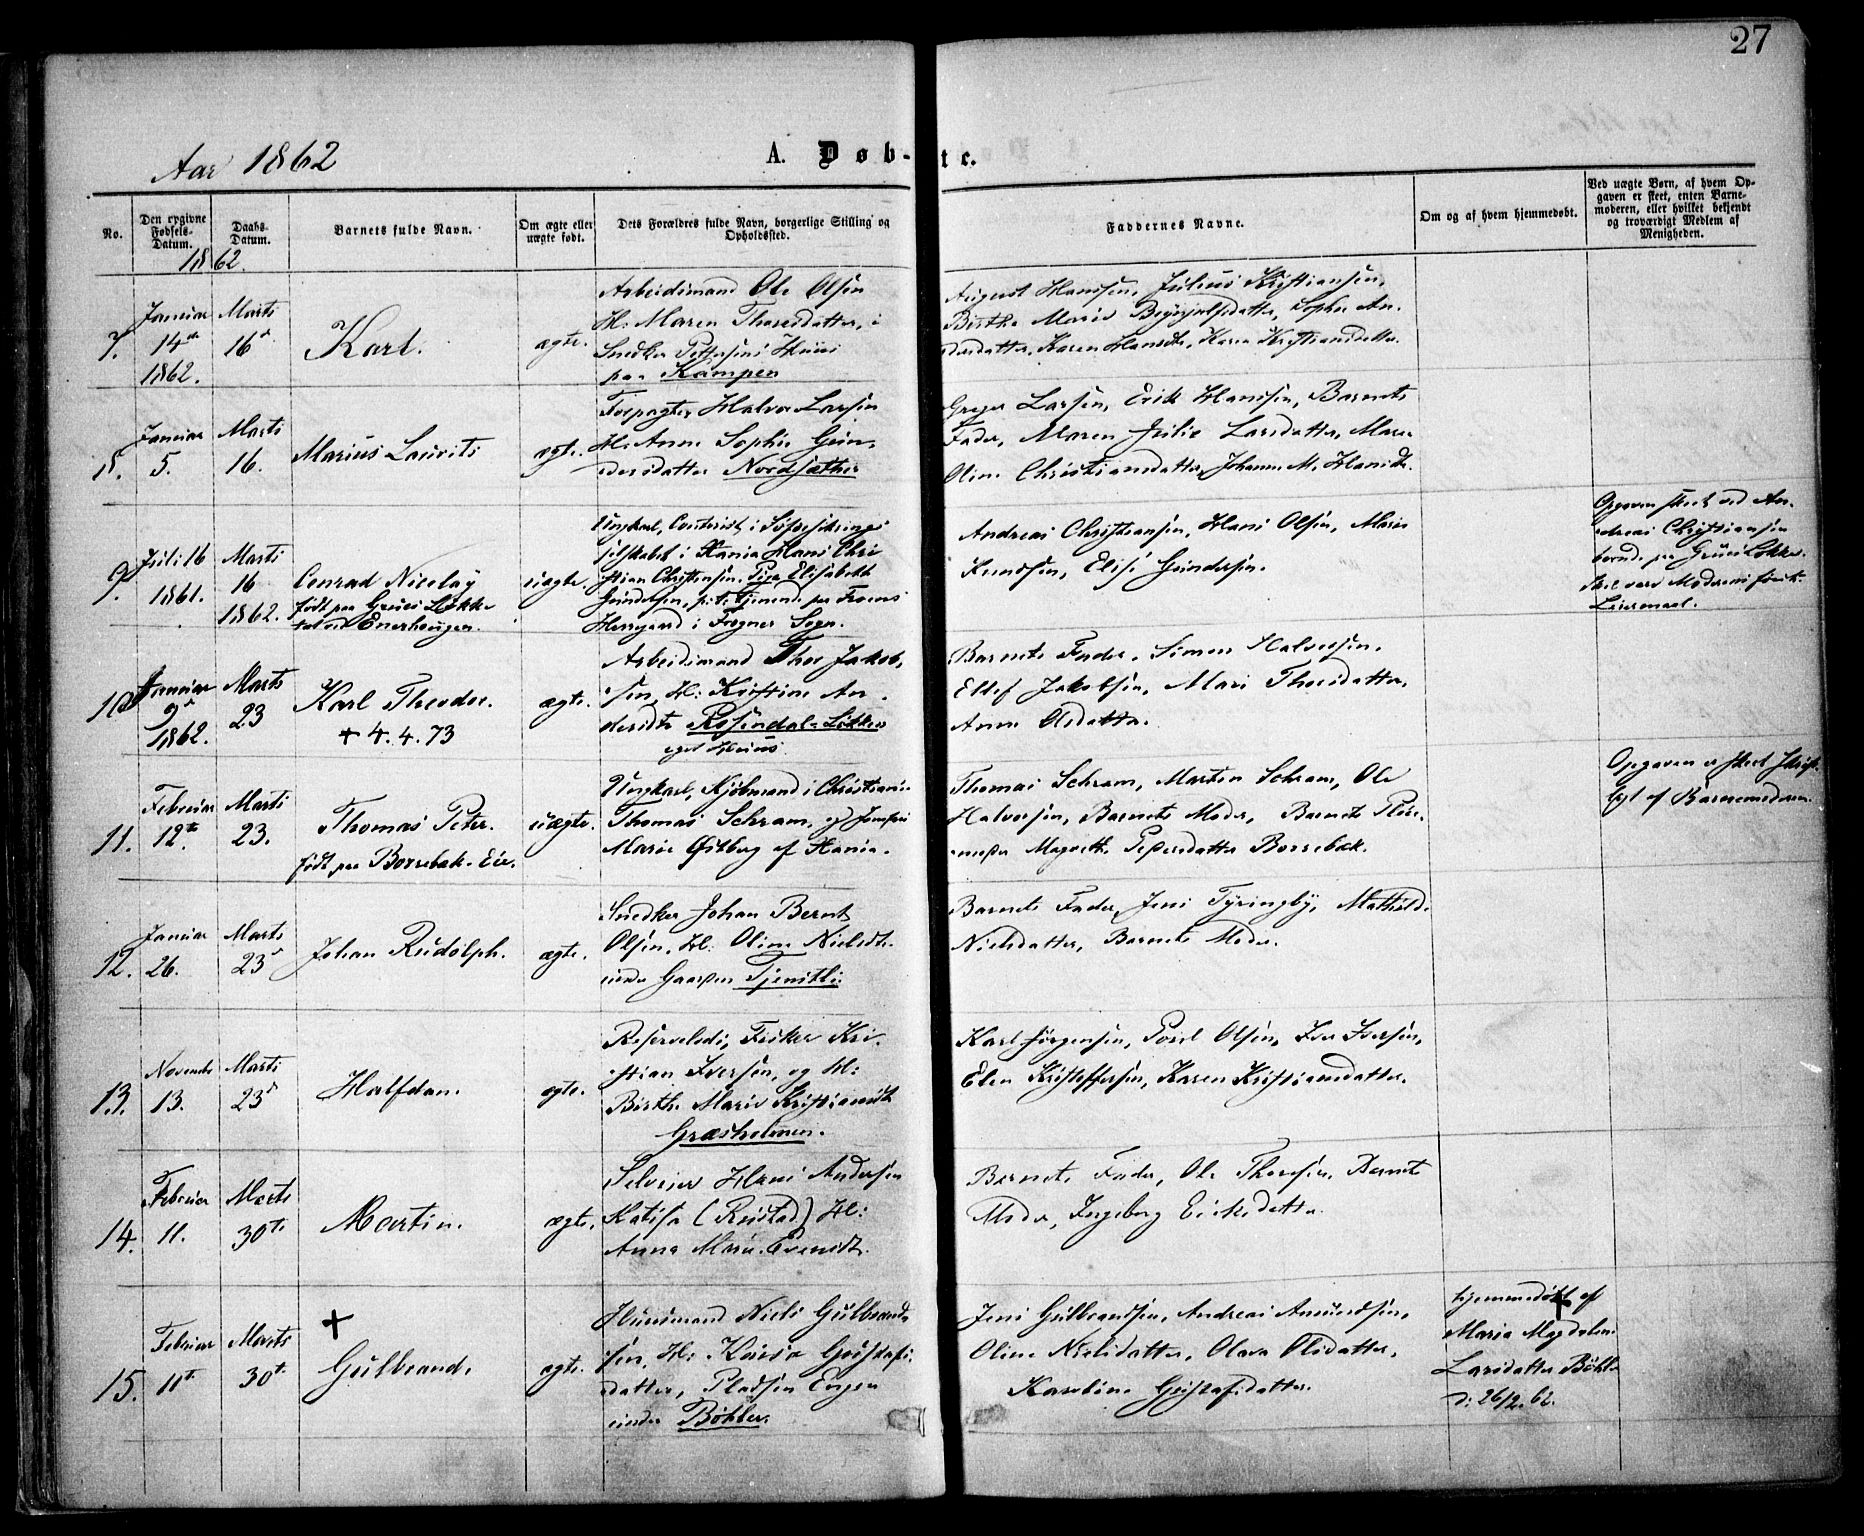 27
Aar 1862
A. Døb-te.
No.
Den opgivne Fødsels-Datum.
Daabs-Datum.
Barnets fulde Navn.
Om ægte eller uægte født.
Dets Forældres fulde Navn, borgerlige Stilling og Opholdssted.
Faddernes Navne.
Om og af hvem hjemmedøbt.
Ved uægte Børn, af hvem Opgaven er skeet, enten Barnemoderen, eller hvilket bekjendt og troværdigt Medlem af Menigheden.
1862.
7.
Januar
14de
1862.
Marts
16de
Karl.
ægte.
Arbeidsmand Ole Olsen
H: Maren Thoresdatter, i
Snedker Pettersens Huus
paa Kampen
August Hanssen, Julius Kristiansen,
Birthe Marie
Sophie An-
dersdatter, Karen Hansdtr, Karen Kristiansdatter
8.
Januar
5.
Marts
16.
Marius Laurits
ægte.
Forpagter Halvor Larsen
H: Anne Sophie Gun-
dersdatter Nordsæther
Larsen, Erik Hanssen, Barnets
Fader, Maren Julie Larsdatter, Maren
Oline Christiansdatter, Johanne M. Hansdtr.
9.
Juli 16
1861.
Marts
16
1862.
Conrad Nicolay
født paa Grües Løkke
ved Enerhougen.
uægte.
Ungkarl, Contorist i Søforsikrings
selskabet i Xania Hans Chri
stian Christensen. Pige Elisabeth
Gundersen, p.t. tjenende paa Frogner
Herregaard i Frogner Sogn.
Andreas Christiansen, Hans Olsen, Marie
Knudsen, Elise Gundersen.
Opgaven skeet ved An-
dreas Christiansen
boende paa Grües Løkke
Skal være Moderens første
Leiermaal.
10
Januar
9de
1862.
Marts
23
Karl Theodor.
+ 4.4.73
ægte.
Arbeidsmand Thor Jakob-
sen, H: Kristine An-
dersdtr Rosendal-Løkken
eget Huus.
Barnets Fader, Simen Halvorsen,
Ellef Jakobsen, Mari Thorsdatter,
Anne Olsdatter.
11.
Februar
12te
Marts
23.
Thomas Peter.
født paa Borrebæk-Eie.
uægte.
Ungkarl, Kjøbmand i Christiania
Thomas Schram, og Jomfru
Marie Østberg af Xania.
Thomas Schram, Morten Schram, Ole
Halvorsen, Barnets Moder, Barnets Pleie-
moder Magrethe Pedersdatter Borrebæk.
Opgaven er skeet skrift-
ligt af Barnemoderen.
12.
Januar
26.
Marts
23de
Johan Rudolph.
ægte.
Snedker Johan Bernt
Olsen, H: Oline Nielsdtr.
under Gaarden Tjenstli:
Barnets Fader, Jens Tyringby, Mathild.
Nielsdatter, Barnets Moder.
13.
Novembr
13.
Marts
23de
Halfdan.
ægte.
Reservelods, Fisker Kri-
stian Iversen, og H:
Birthe Marie Kristiansdtr
Græsholmen.
Karl Jørgensen, Poul Olsen, Iver Iversen,
Elen Kristoffersen, Karen Kristiansdatter.
14.
Februar
11.
Marts
30te
Martin.
ægte.
Selveier Hans Andersen
Katisa (Rustad) H:
Anna Marie Evensdtr.
Barnets Fader, Ole Thoresen, Barnets
Moder, Ingeborg Eriksdatter.
15.
Februar
11te
Marts
30te
+
Gulbrand.
ægte.
Huusmand Niels Gulbrand-
sen, H: Kaisa Gustafs-
datter, Pladsen Engen
under Bøhler.
Jens Gulbrandsen, Andreas Amundsen,
Oline Nielsdatter, Olava Olsdatter,
Karoline Gustafsdatter.
hjemmedøbt af
+
Maria Magdalena
Larsdatter Bøhler
d: 26/2. 62.